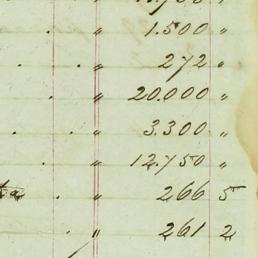 " 1.500 "
" 272 "
" 20.000 "
" 3.300 "
" 12.750 "
" 266 5
" 261 2